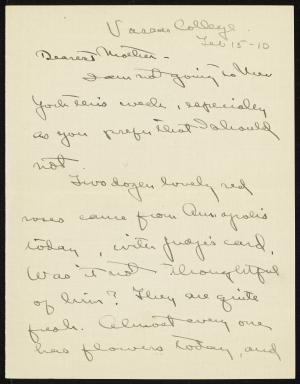 Vassar College
Feb 15-10
Dearest Mother-
I am not going to New
York this week, especially
as you prefer that I should
not.
Two dozen lovely red
roses came from Annapolis
today, with Judge's card,
Was it not thoughtful
of him? They are quite
fresh. Almost every one
has flowers today, and